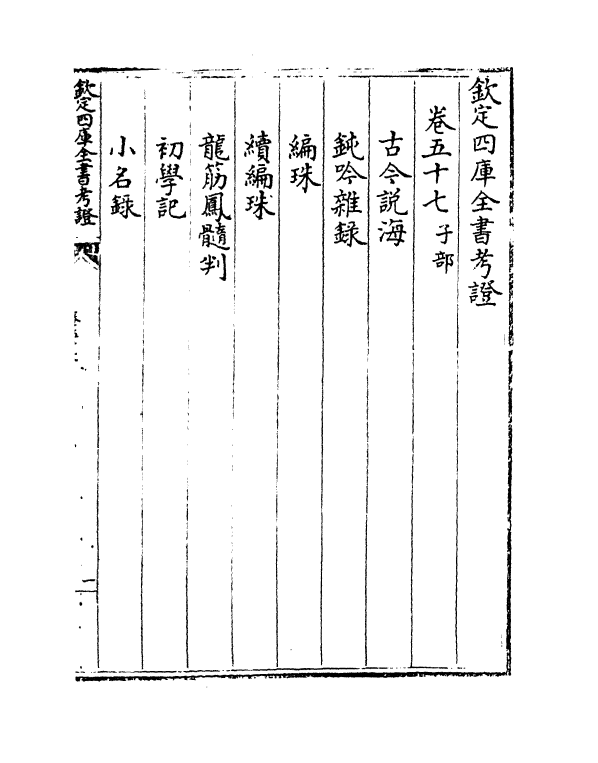 欽定四庫全書考證
卷五十七 子部
古今説海
鈍吟雜録
編珠
續編珠
龍筋鳳髓判
初學記
小名録
欽定四庫全書考證
一